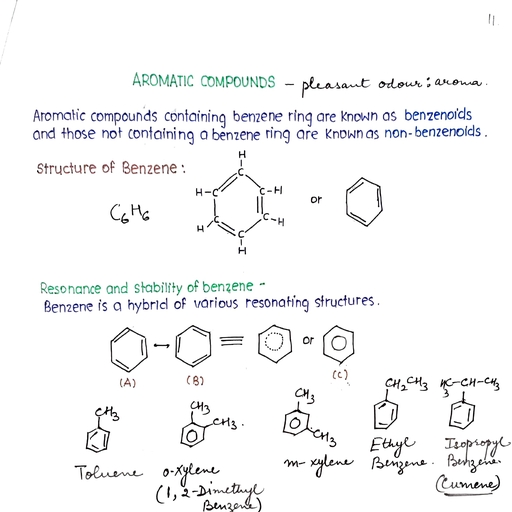 11.
AROMATIC COMPOUNDS – pleasant odour : aroma.
Aromatic compounds containing benzene ring are known as benzenoids
and those not containing a benzene ring are known as non-benzenoids.
Structure of Benzene :
C6H6
H
C
H-C
C-H
or
C
C-H
H
C
H
Resonance and stability of benzene -
Benzene is a hybrid of various resonating structures.
or
(A) (B) (C)
CH3
CH3
CH3.
CH3
CH3
CH2CH3
H3C-CH-CH3
Toluene
o-xylene
(1, 2-Dimethyl
Benzene)
m-xylene
Ethyl
Benzene.
Isopropyl
Benzene
(Cumene)